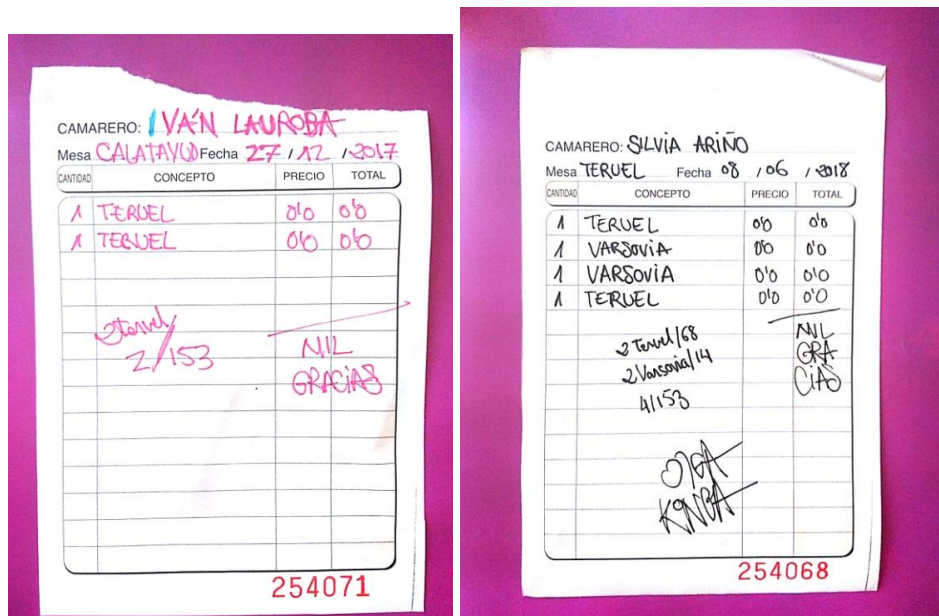 CAMARERO: IVÁN LAUROBA
Mesa CALATAYUD Fecha 27 / 12 / 2017
CANTIDAD CONCEPTO PRECIO TOTAL
1 TERUEL 0'0 0'0
1 TERUEL 0'0 0'0
2 Teruel/
2/153
MIL
GRACIAS
254071
CAMARERO: SILVIA ARIÑO
Mesa TERUEL Fecha 08 / 06 / 2018
CANTIDAD CONCEPTO PRECIO TOTAL
1 TERUEL 0'0 0'0
1 VARSOVIA 0'0 0'0
1 VARSOVIA 0'0 0'0
1 TERUEL 0'0 0'0
2 Teruel/68
2 Varsovia/14
4/153
MIL
GRA
CIAS
OLGA
KINGA
254068